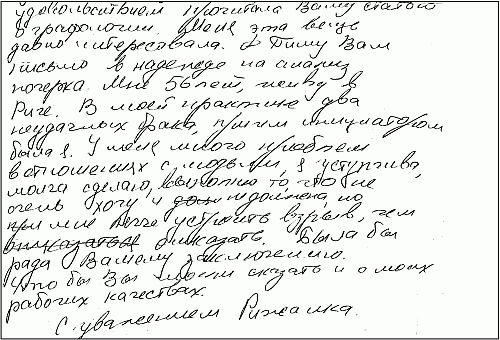 удовольствием прочитала Вашу статью
о графологии. Меня эта вещь
давно интересовала. Пишу Вам
письмо в надежде на анализ
почерка. Мне 56 лет, живу в
Риге. В моей практике два
неудачных брака, причём инициатором
была я. У меня много проблем
в отношениях с людьми, я уступчива,
молча сделаю, выполню то, что не
очень хочу и не должна, но
при мне легче устроить взрыв, чем
отказать. Была бы
рада Вашему заключению.
Что бы Вы могли сказать и о моих
рабочих качествах.
С уважением Рижанка.